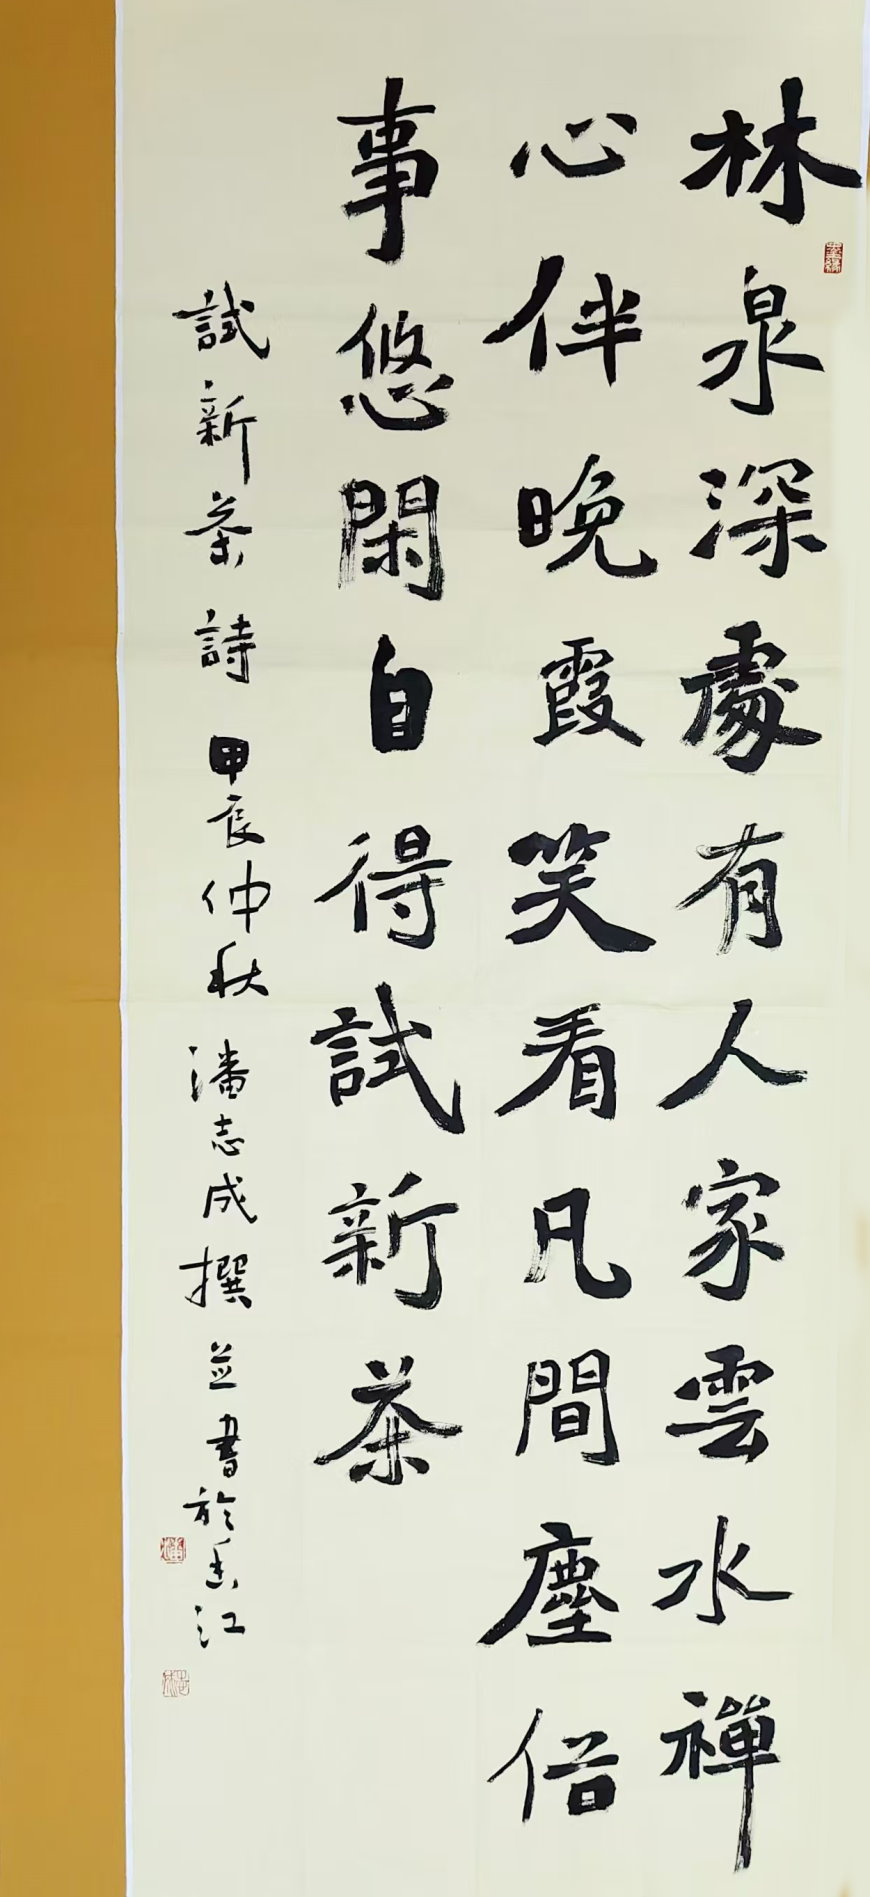 林泉深處有人家雲水禪
心伴晚霞笑看凡間塵俗
事悠閑自得試新茶
試新茶詩 甲辰仲秋 潘志成撰並書於香江